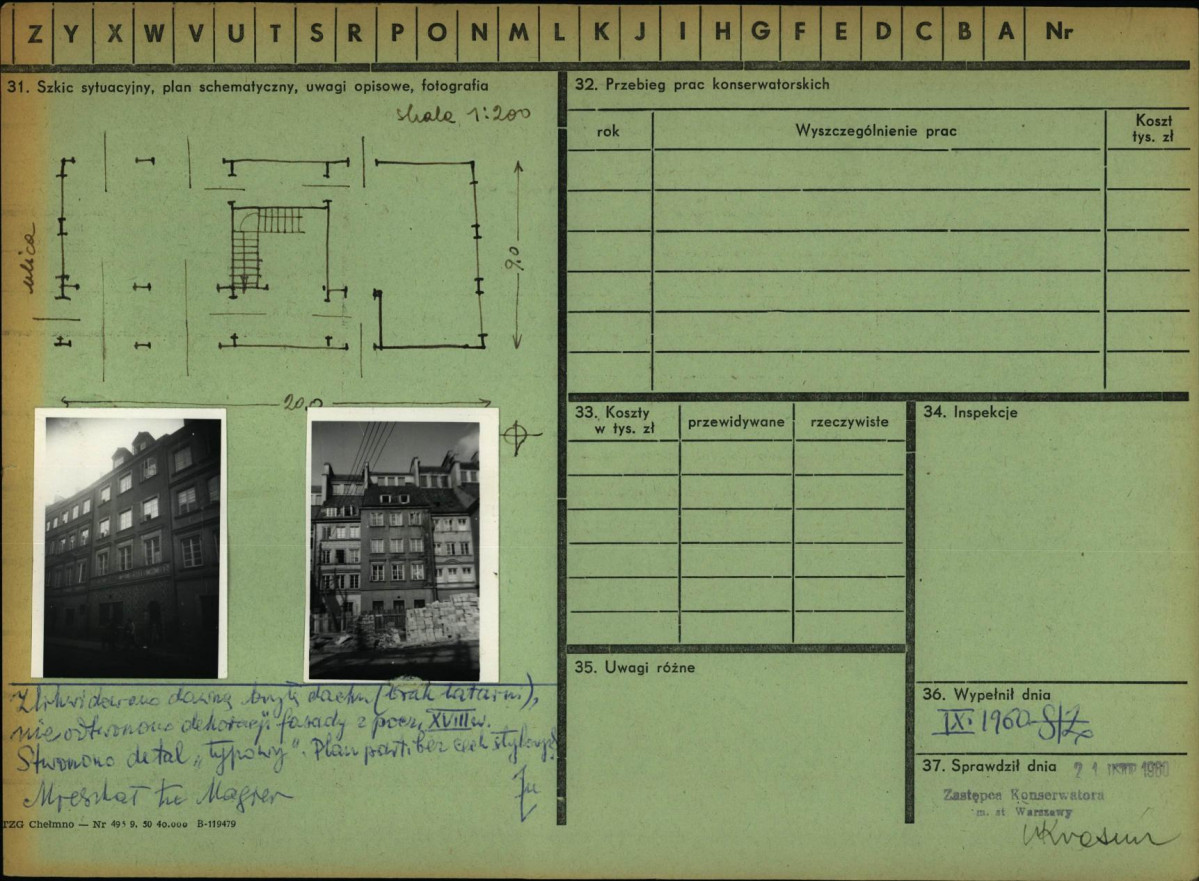 Z Y X W V U T S R P O N M L K J I H G F E D C B A Nr
31. Szkic sytuacyjny, plan schematyczny, uwagi opisowe, fotografia
skala 1:200
ulica
9,0
20,0
Zlikwidowano dawną bryłę dachu (brak latarni),
nie odtworzono dekoracji fasady z pocz. XVIII w.
Stworzono detal „typowy”. Plan partii bez cech stylowych
Mieszkał tu Magier
TZG Chełmno — Nr 495 9. 50 40.000 B-119479
32. Przebieg prac konserwatorskich
rok
Wyszczególnienie prac
Koszt
tys. zł
33. Koszty
w tys. zł
przewidywane
rzeczywiste
34. Inspekcje
35. Uwagi różne
36. Wypełnił dnia
IX 1960
37. Sprawdził dnia 21 1960
Zastępca Konserwatora
m. st Warszawy